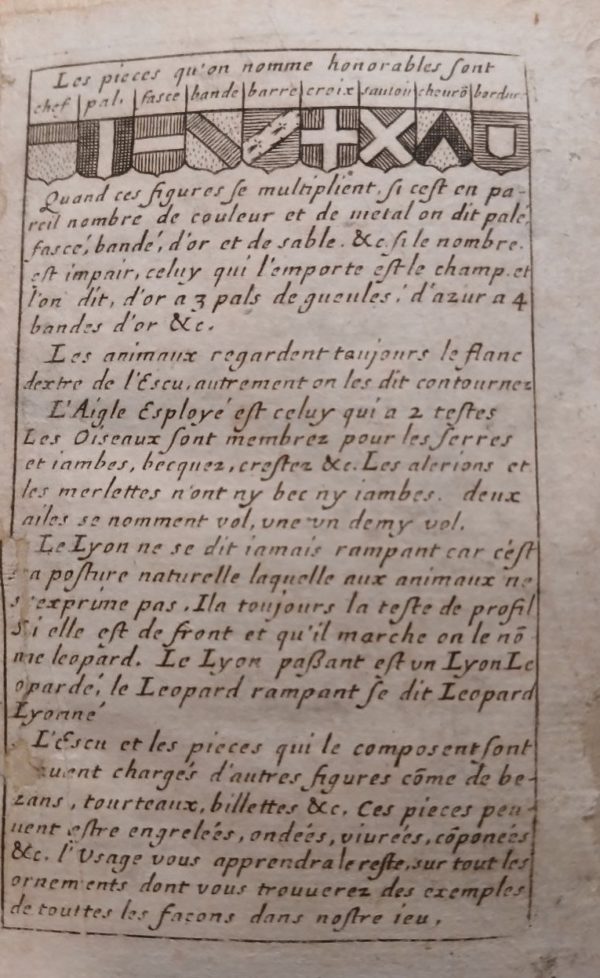 Les pieces qu'on nomme honorables sont
chef pal. fasce bande barre croix sautoir chevrõ bordur
Quand ces figures se multiplient, si c'est en pa-
reil nombre de couleur et de metal on dit palé,
fascé, bandé, d'or et de sable. &c. si le nombre.
est impair, celuy qui l'emporte est le champ. et
l'on dit, d'or a 3 pals de gueules, d'azur a 4
bandes d'or &c.
Les animaux regardent toujours le flanc
dextre de l'Escu, autrement on les dit contournez
L'Aigle Esployé est celuy qui a 2 testes
Les Oiseaux sont membrez pour les serres
et iambes, becquez, crestez &c. Les alerions et
les merlettes n'ont ny bec ny iambes. deux
ailes se nomment vol, vne vn demy vol.
Le Lyon ne se dit iamais rampant car c'est
sa posture naturelle laquelle aux animaux ne
s'exprime pas. Il a toujours la teste de profil
Si elle est de front et qu'il marche on le nõ
me leopard. Le Lyon paßant est vn Lyon Le
opardé, le Leopard rampant se dit Leopard
Lyonné
L'Escu et les pieces qui le composent sont
uuent chargés d'autres figures cõme de be-
zans, tourteaux, billettes &c. Ces pieces peu-
uent estre engrelées, ondées, viurées, cõponées
&c. l'Vsage vous apprendra le reste, sur tout les
ornements dont vous trouuerez des exemples
de touttes les façons dans nostre ieu.